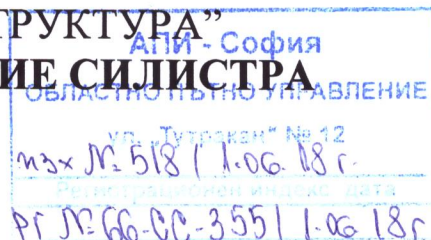 ТРУКТУРА”
АПИ - София
ИЕ СИЛИСТРА
ОБЛАСТНО ПЪТНО УПРАВЛЕНИЕ
ул. „Тутракан" № 12
изх № 518 / 1.06.18 г.
Регистрационен индекс дата
РГ № 66-СС-355 / 1.06.18 г